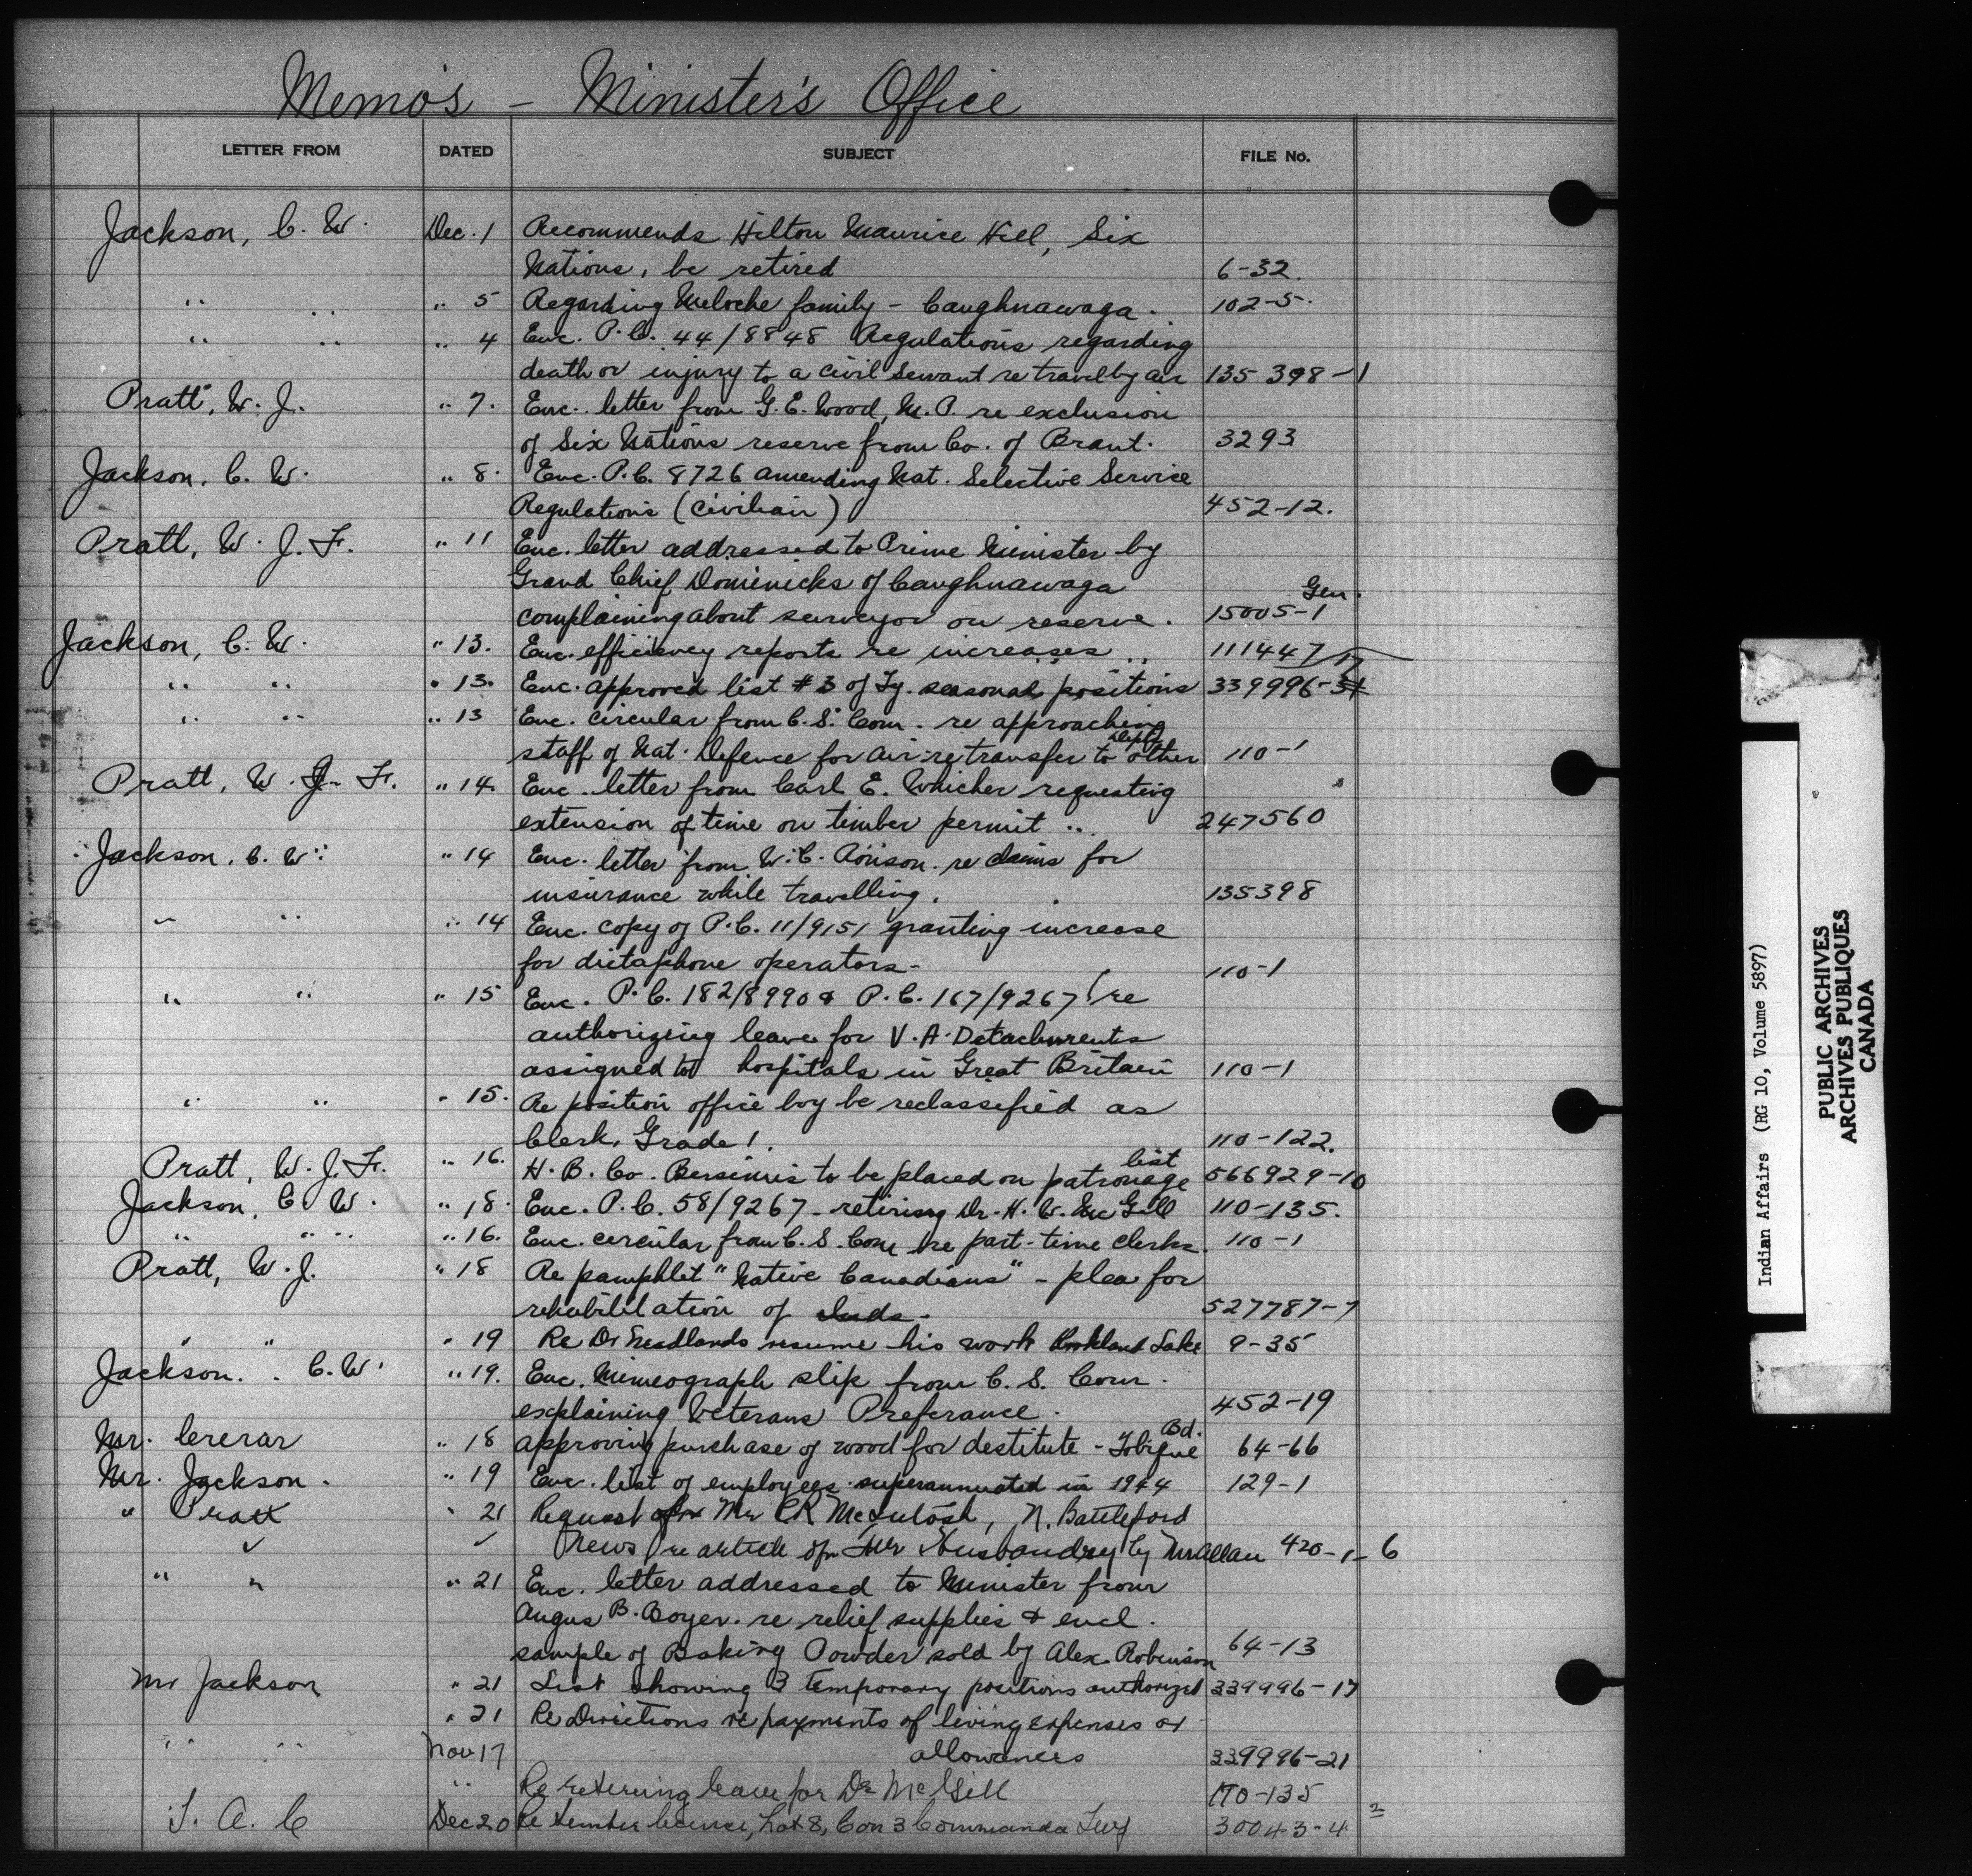 Memo's – Minister's Office
LETTER FROM DATED SUBJECT FILE No.
Jackson, C. W. Dec. 1 Recommends Hilton Maurice Hill, Six
Nations, be retired 6-32.
" " " 5 Regarding Meloche family – Caughnawaga. 102-5.
" " " 4 Enc. P.C. 44/8848 Regulations regarding
death or injury to a civil servant re travel by air 135398-1
Pratt, W. J. " 7. Enc. letter from G. E. Wood, M.P. re exclusion
of Six Nations reserve from Co. of Brant. 3293
Jackson, C. W. " 8. Enc. P.C. 8726 amending Nat. Selective Service
Regulations (Civilian) 452-12.
Pratt, W. J. F. " 11 Enc. letter addressed to Prime Minister by
Grand Chief Dominicks of Caughnawaga
complaining about surveyor on reserve. 15005-1 Gen.
Jackson, C. W. " 13. Enc. efficiency reports re increases 111447
" " " 13. Enc. approved list #3 of Ty. seasonal positions 339996-17
" " " 13 Enc. circular from C. S. Com. re approaching
staff of Nat. Defence for Air re transfer to other Depts 110-1
Pratt, W. J. F. " 14. Enc. letter from Carl E. Whicher requesting
extension of time on timber permit .. 247560
Jackson, C. W. " 14 Enc. letter from W. C. Ronson re claims for
insurance while travelling. 135398
" " " 14 Enc. copy of P.C. 11/9151 granting increase
for dictaphone operators- 110-1
" " " 15 Enc. P.C. 182/8990 & P.C. 167/9267 re
authorizing leave for V. A. Detachments
assigned to hospitals in Great Britain 110-1
" " " 15. Re position office boy be reclassified as
Clerk, Grade 1. 110-122.
Pratt, W. J. F. " 16. H. B. Co. Bersimis to be placed on patronage list 566929-10
Jackson, C. W. " 18. Enc. P.C. 58/9267 – retiring Dr. H. W. McGill 110-135.
" " " 16. Enc. circular from C. S. Com re part-time clerks. 110-1
Pratt, W. J. " 18 Re pamphlet "Native Canadians" – plea for
rehabilitation of Inds. 527787-7
" " " 19 Re Dr Meadlands resume his work Lake 9-35
Jackson. C. W. " 19. Enc. Mimeograph slip from C. S. Com.
explaining Veterans Preferance. 452-19
Mr. Crerar " 18 approving purchase of wood for destitute - Tobique Bd. 64-66
Mr. Jackson. " 19 Enc. list of employees superannuated in 1944 129-1
" Pratt " 21 Request from Mr CR McIntosh, N. Battleford
News re article on Fur Husbandry by Mr Allan 420-1-6
" " " 21 Enc. letter addressed to Minister from
Angus B. Boyer. re relief supplies & encl.
sample of Baking Powder sold by Alex. Robinson 64-13
Mr Jackson " 21 List showing 3 temporary positions authorized 339996-17
" 21 Re Directions re payments of living expenses or
" " Nov 17 allowances 339996-21
" Re retiring leave for Dr McGill 110-135
T. A. C Dec 20 Re timber licence, Lot 8, Con 3 Commanda Twp 30043-4
Indian Affairs (RG 10, Volume 5897)
PUBLIC ARCHIVES
ARCHIVES PUBLIQUES
CANADA